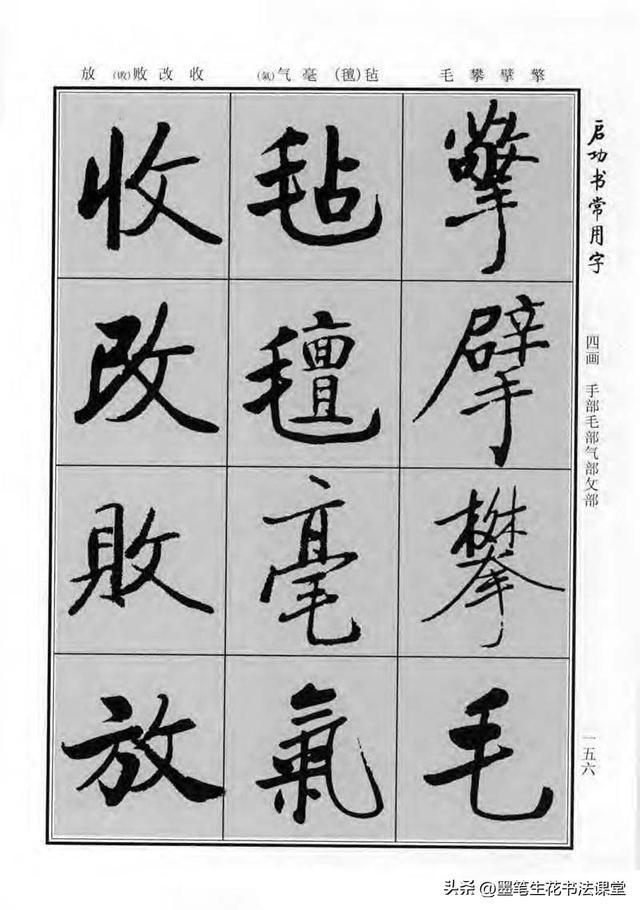 启功书常用字
四画 手部毛部气部攵部
一五六
擎擘攀毛
毡(氈)毫气(氣)
收改败(敗)放
擎
擘
攀
毛
毡
氈
毫
氣
收
改
敗
放
头条 @墨笔生花书法课堂